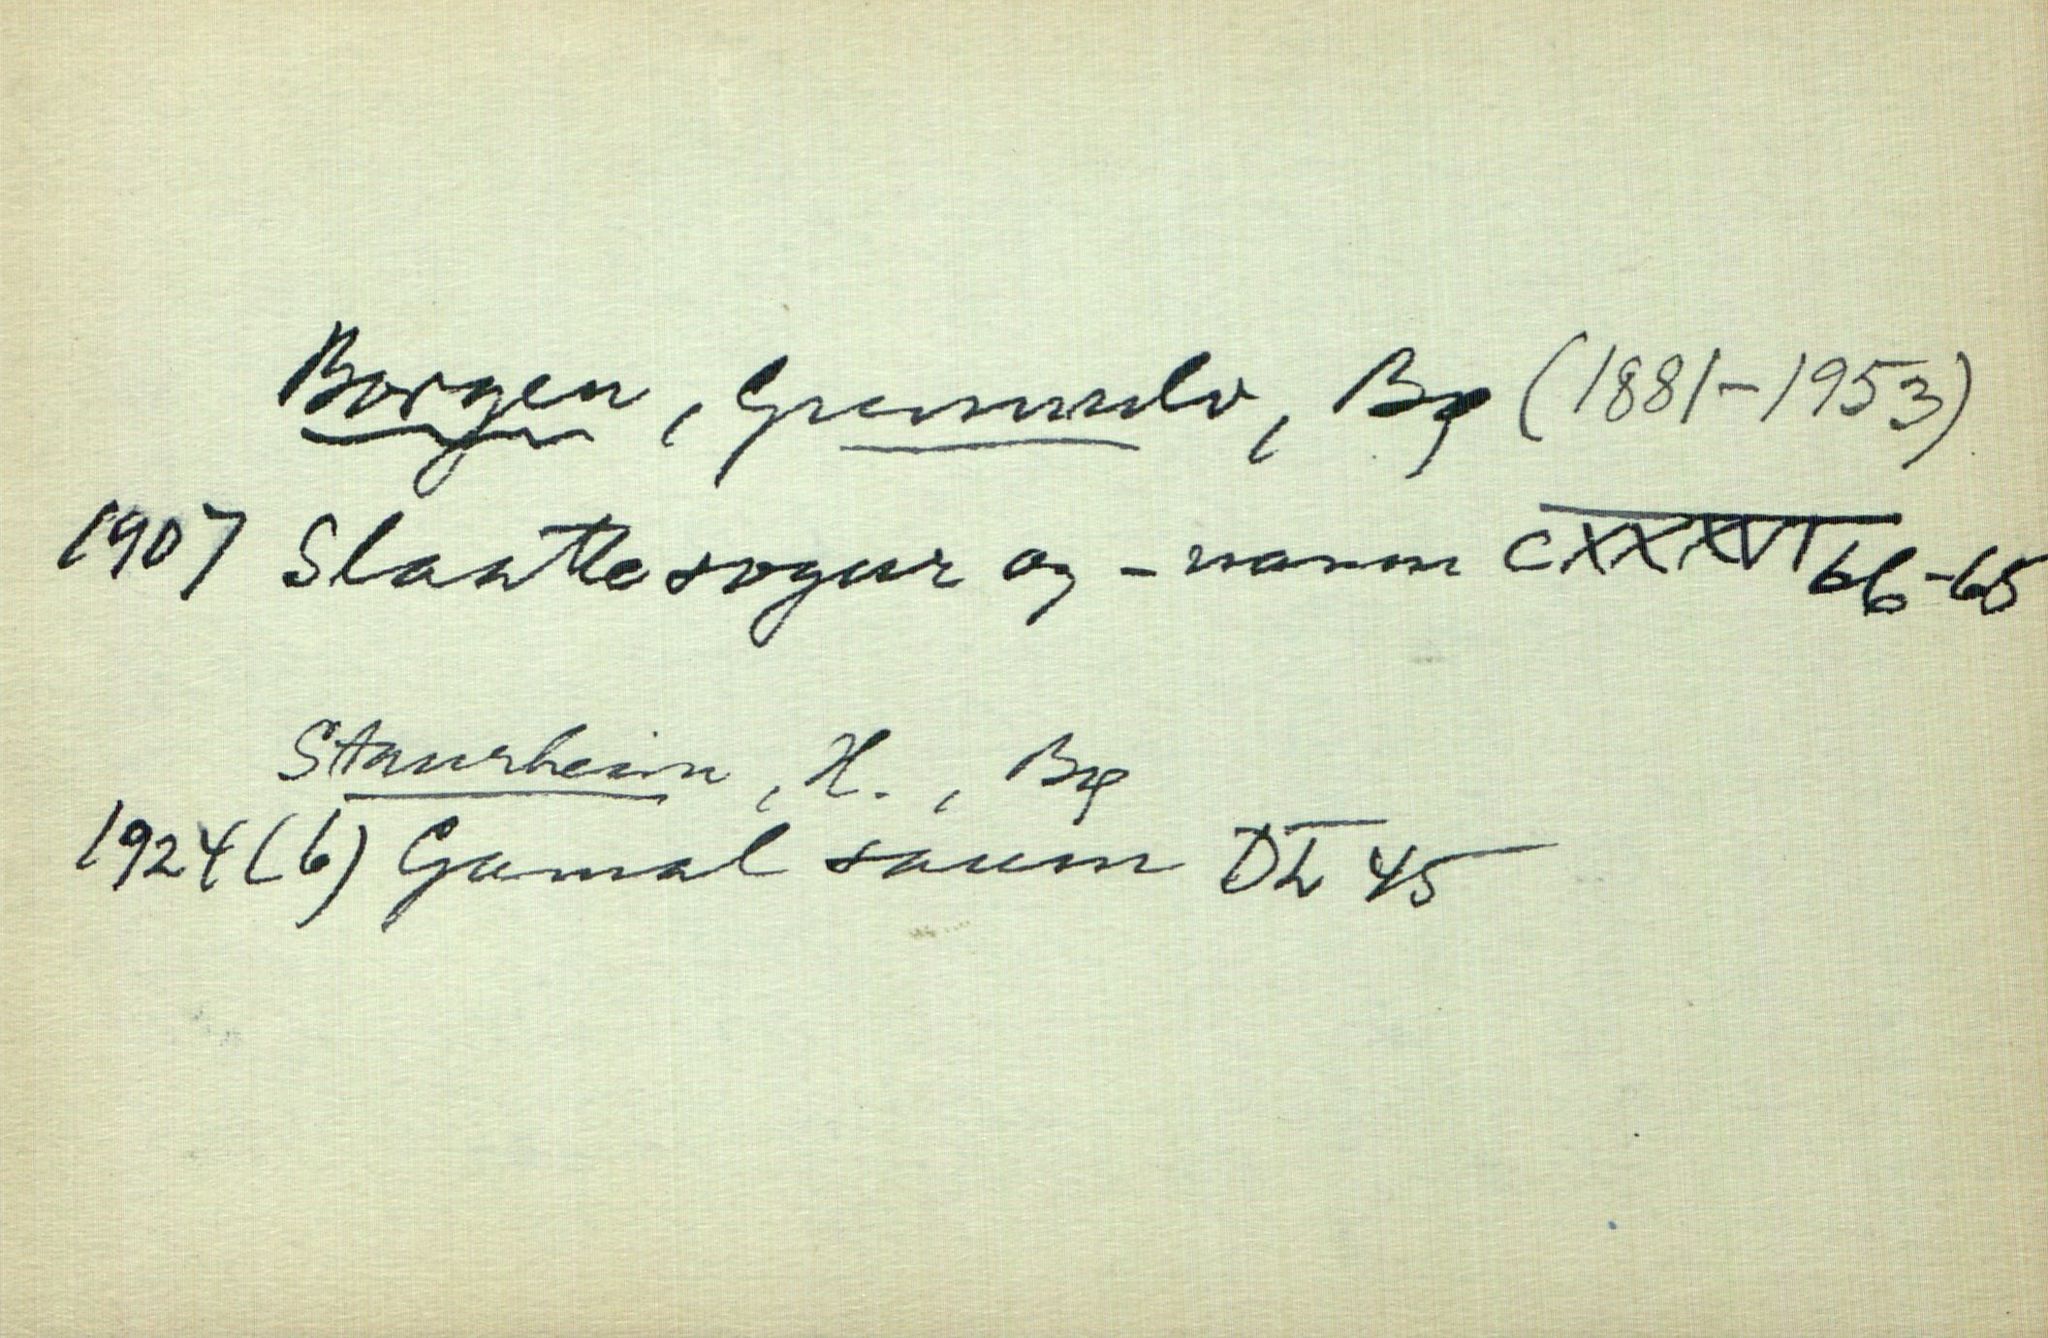 Borgen, Gunnulv, Bø (1881-1953)
1907 Slaattesogur og -namn CXXXVI 66-65
Staurheim, H., Bø
1924 (6) Gamal saum 45